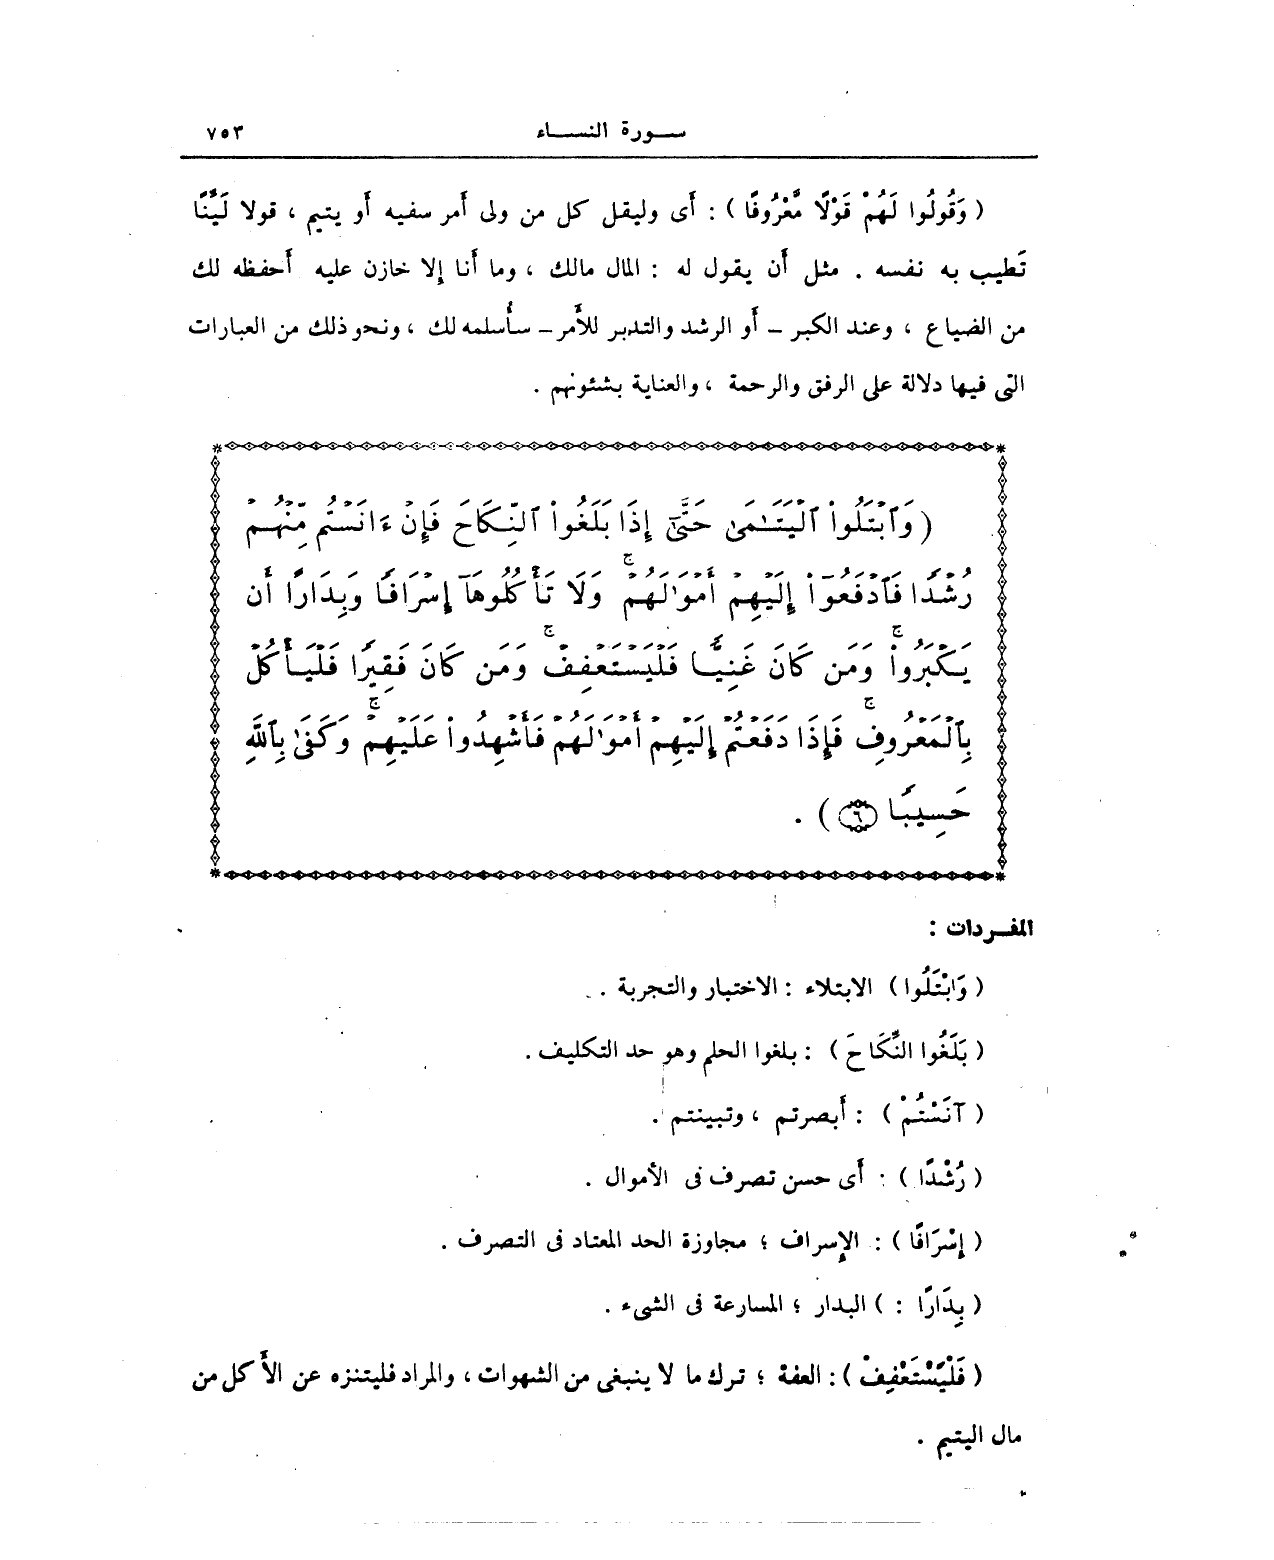 سورة النساء ٧٥٣
( وَقُولُوا لَهُمْ قَوْلًا مَّعْرُوفًا ) : أى وليقل كل من ولى أمر سفيه أو يتيم ، قولا لَيِّنًا
تَطيب به نفسه . مثل أن يقول له : المال مالك ، وما أنا إلا خازن عليه أحفظه لك
من الضياع ، وعند الكبر – أو الرشد والتدبر للأمر – سأُسلمه لك ، ونحو ذلك من العبارات
التى فيها دلالة على الرفق والرحمة ، والعناية بشئونهم .
( وَٱبْتَلُوا۟ ٱلْيَتَـٰمَىٰ حَتَّىٰٓ إِذَا بَلَغُوا۟ ٱلنِّكَاحَ فَإِنْ ءَانَسْتُم مِّنْهُمْ
رُشْدًا فَٱدْفَعُوٓا۟ إِلَيْهِمْ أَمْوَٰلَهُمْ ۖ وَلَا تَأْكُلُوهَآ إِسْرَافًا وَبِدَارًا أَن
يَكْبَرُوا۟ ۚ وَمَن كَانَ غَنِيًّا فَلْيَسْتَعْفِفْ ۖ وَمَن كَانَ فَقِيرًا فَلْيَأْكُلْ
بِٱلْمَعْرُوفِ ۚ فَإِذَا دَفَعْتُمْ إِلَيْهِمْ أَمْوَٰلَهُمْ فَأَشْهِدُوا۟ عَلَيْهِمْ ۚ وَكَفَىٰ بِٱللَّهِ
حَسِيبًا ٦ ) .
المفردات :
( وَابْتَلُوا ) الابتلاء : الاختبار والتجربة .
( بَلَغُوا النِّكَاحَ ) : بلغوا الحلم وهو حد التكليف .
( آنَسْتُمْ ) : أبصرتم ، وتبينتم .
( رُشْدًا ) : أى حسن تصرف فى الأموال .
( إِسْرَافًا ) : الإسراف ؛ مجاوزة الحد المعتاد فى التصرف .
( بِدَارًا : ) البدار ؛ المسارعة فى الشىء .
( فَلْيَسْتَعْفِفْ ) : العفة ؛ ترك ما لا ينبغى من الشهوات ، والمراد فليتنزه عن الأكل من
مال اليتيم .